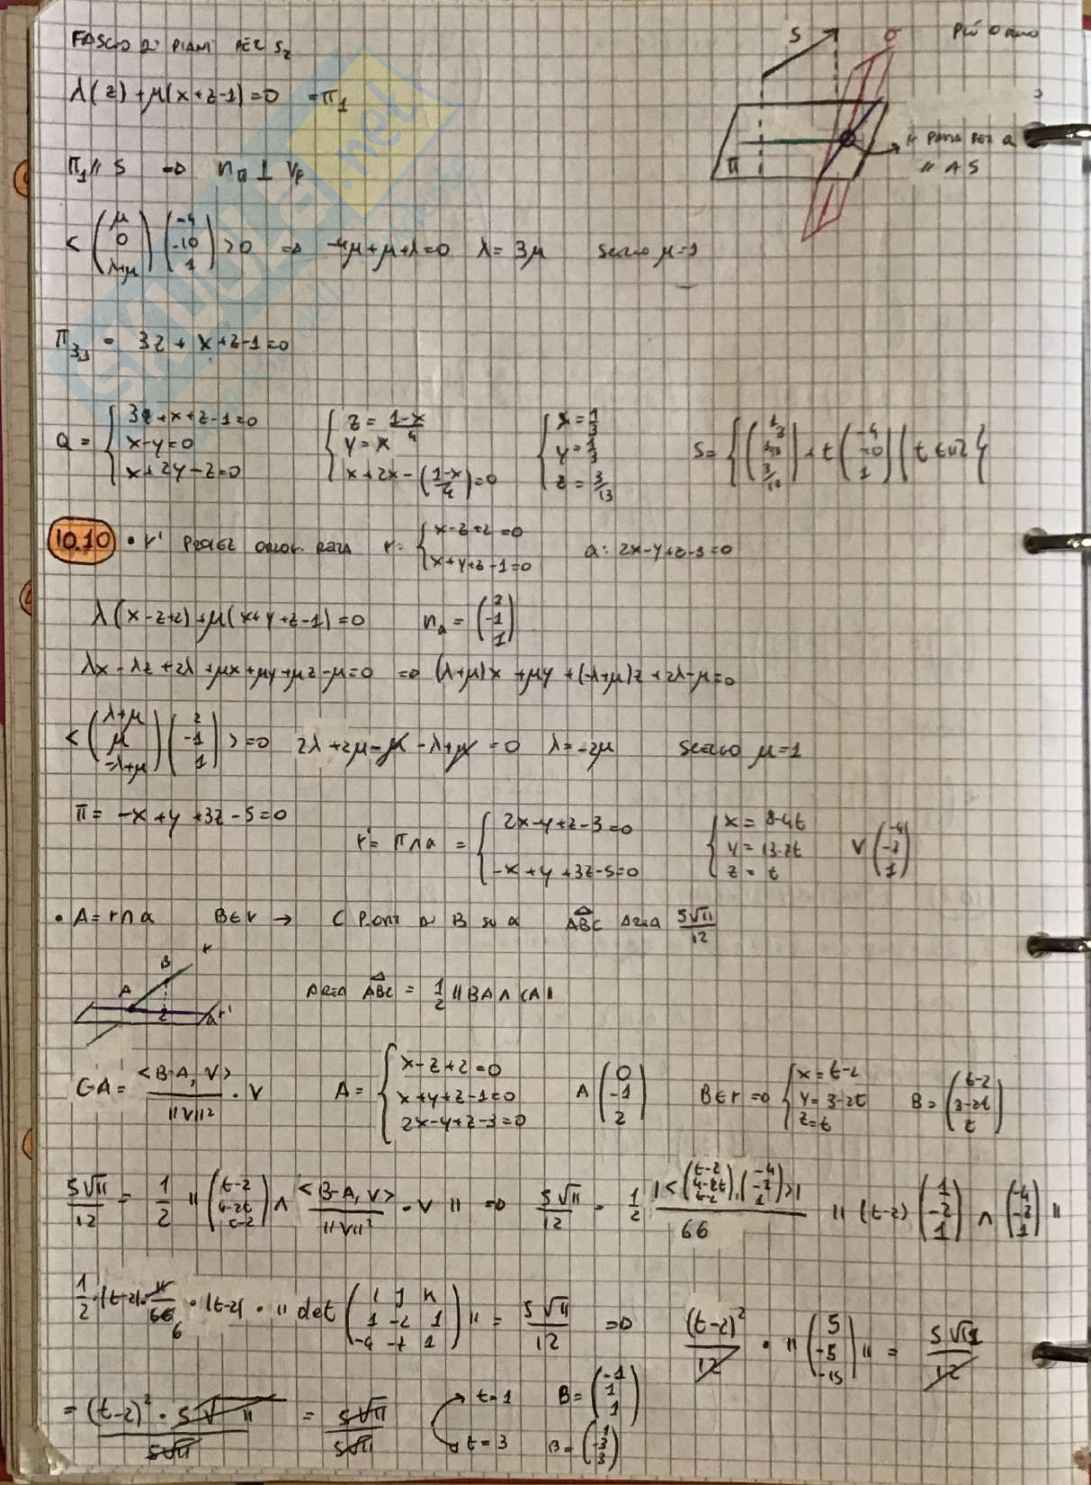 FASCIO DI PIANI PER S₂
λ(z)+μ(x+z-1)=0 =π₁
S
σ
PIÙ O
π
// PIANO PER Q
// A S
π₁ // S ⇒ n_π ⊥ V_r
<(μ 0 λ+μ)(-4 -10 1)>0 ⇒ -4μ+μ+λ=0 λ=3μ SCELGO μ=1
π₃,₁ = 3z+x+z-1=0
Q = { 3z+x+z-1=0 x-y=0 x+2y-z=0 { z=(1-x)/4 y=x x+2x-((1-x)/4)=0 { x=1/3 y=1/3 z=3/13
S={ +t(-4 -10 1) | t∈ℝ}
10.10 • r' PROIEZ ORTOG RETTA r={ x-z+2=0 x+y+z-1=0 α: 2x-y+z-3=0
λ(x-z+2)+μ(x+y+z-1)=0 n_α=(2 -1 1)
λx-λz+2λ+μx+μy+μz-μ=0 ⇒ (λ+μ)x+μy+(-λ+μ)z+2λ-μ=0
<(λ+μ μ -λ+μ)(2 -1 1)>=0 2λ+2μ-μ-λ+μ=0 λ=-2μ SCELGO μ=1
π= -x+y+3z-5=0
r'= π∩α = { 2x-y+z-3=0 -x+y+3z-5=0 { x=8-4t y=13-7t z=t V(-4 -7 1)
• A=r∩α B∈r → C PROIEZ DI B SU α ABC AREA 5√11/12
B r
A
C α r'
AREA ABC = 1/2 ||BA∧CA||
C-A = <B-A,V>/||V||² · V A={ x-z+2=0 x+y+z-1=0 2x-y+z-3=0 A(0 -1 2) B∈r ⇒ { x=t-2 y=3-2t z=t B=(t-2 3-2t t)
5√11/12 = 1/2 ||(t-2 4-2t t-2) ∧ <B-A,V>/||V||² · V|| ⇒ 5√11/12 = 1/2 |<(t-2 4-2t t-2),(-4 -7 1)>|/66 ||(t-2)(1 -2 1)∧(-4 -7 1)||
1/2 · |t-2| · 11/66 6 · |t-2| · ||det(i j k 1 -2 1 -4 -7 1)|| = 5√11/12 ⇒ (t-2)²/12 · ||(5 -5 -15)|| = 5√11/12
= (t-2)² · 5√11/5√11 = 5√11/5√11 t=1 B=(-1 1 1)
t=3 B=(1 -3 3)